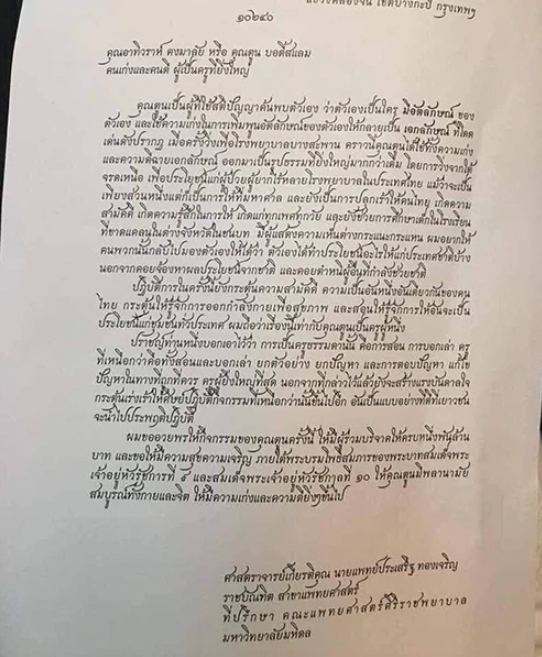 แขวงคลองจั่น เขตบางกะปิ กรุงเทพฯ
๑๐๒๔๐
คุณอาทิวราห์ คงมาลัย หรือ คุณตูน บอดี้สแลม
คนเก่งและคนดี ผู้เป็นครูที่ยิ่งใหญ่
คุณตูนเป็นผู้ที่ใช้สติปัญญาค้นพบตัวเอง ว่าตัวเองเป็นใคร มีอัตลักษณ์ ของ
ตัวเอง และใช้ความเก่งในการเพิ่มพูนอัตลักษณ์ของตัวเองให้กลายเป็น เอกลักษณ์ ที่โดด
เด่นดังปรากฏ เมื่อครั้งวิ่งเพื่อโรงพยาบาลบางสะพาน คราวนี้คุณตูนได้ใช้ทั้งความเก่ง
และความดีฉายเอกลักษณ์ ออกมาเป็นรูปธรรมที่ยิ่งใหญ่มากกว่าเดิม โดยการวิ่งจากใต้
จรดเหนือ เพื่อประโยชน์แก่ผู้ป่วยผู้ยากไร้หลายโรงพยาบาลในประเทศไทย แม้ว่าจะเป็น
เพียงส่วนหนึ่งแต่ก็เป็นการให้ที่มหาศาล และยังเป็นการปลุกเร้าให้คนไทย เกิดความ
สามัคคี เกิดความรู้สึกในการให้ เกิดแก่ทุกเพศทุกวัย และยังช่วยการศึกษาเด็กในโรงเรียน
ที่ขาดแคลนในต่างจังหวัดในชนบท มีผู้แสดงความเห็นต่างกระแนะกระแหน ผมอยากให้
คนพวกนั้นกลับไปมองตัวเองให้ได้ว่า ตัวเองได้ทำประโยชน์อะไรให้แก่ประเทศชาติบ้าง
นอกจากคอยจ้องหาผลประโยชน์จากชาติ และคอยตำหนิผู้อื่นที่กำลังช่วยชาติ
ปฏิบัติการในครั้งนี้ยังกระตุ้นความสามัคคี ความเป็นอันหนึ่งอันเดียวกันของคน
ไทย กระตุ้นให้รู้จักการออกกำลังกายเพื่อสุขภาพ และสอนให้รู้จักการให้อันจะเป็น
ประโยชน์แก่ชุมชนทั่วประเทศ ผมถือว่าเรื่องนี้เท่ากับคุณตูนเป็นครูผู้หนึ่ง
ปราชญ์ท่านหนึ่งบอกเอาไว้ว่า การเป็นครูธรรมดานั้น คือการสอน การบอกเล่า ครู
ที่เหนือกว่าคือทั้งสอนและบอกเล่า ยกตัวอย่าง ยกปัญหา และการตอบปัญหา แก้ไข
ปัญหาในทางที่ถูกที่ควร ครูผู้ยิ่งใหญ่ที่สุด นอกจากที่กล่าวไว้แล้วยังจะสร้างแรงบันดาลใจ
กระตุ้นเร่งเร้าให้ศิษย์ปฏิบัติกิจกรรมที่เหนือกว่านั้นขึ้นไปอีก อันเป็นแบบอย่างที่ดีที่เยาวชน
จะนำไปประพฤติปฏิบัติ
ผมขออวยพรให้กิจกรรมของคุณตูนครั้งนี้ ให้มีผู้ร่วมบริจาคให้ครบหนึ่งพันล้าน
บาท และขอให้มีความสุขความเจริญ ภายใต้พระบรมโพธิสมภารของพระบาทสมเด็จพระ
เจ้าอยู่หัวรัชการที่ ๙ และสมเด็จพระเจ้าอยู่หัวรัชกาลที่ ๑๐ ให้คุณตูนมีพลานามัย
สมบูรณ์ทั้งกายและจิต ให้มีความเก่งและความดียิ่งๆขึ้นไป
ศาสตราจารย์เกียรติคุณ นายแพทย์ประเสริฐ ทองเจริญ
ราชบัณฑิต สาขาแพทยศาสตร์
ที่ปรึกษา คณะแพทยศาสตร์ศิริราชพยาบาล
มหาวิทยาลัยมหิดล